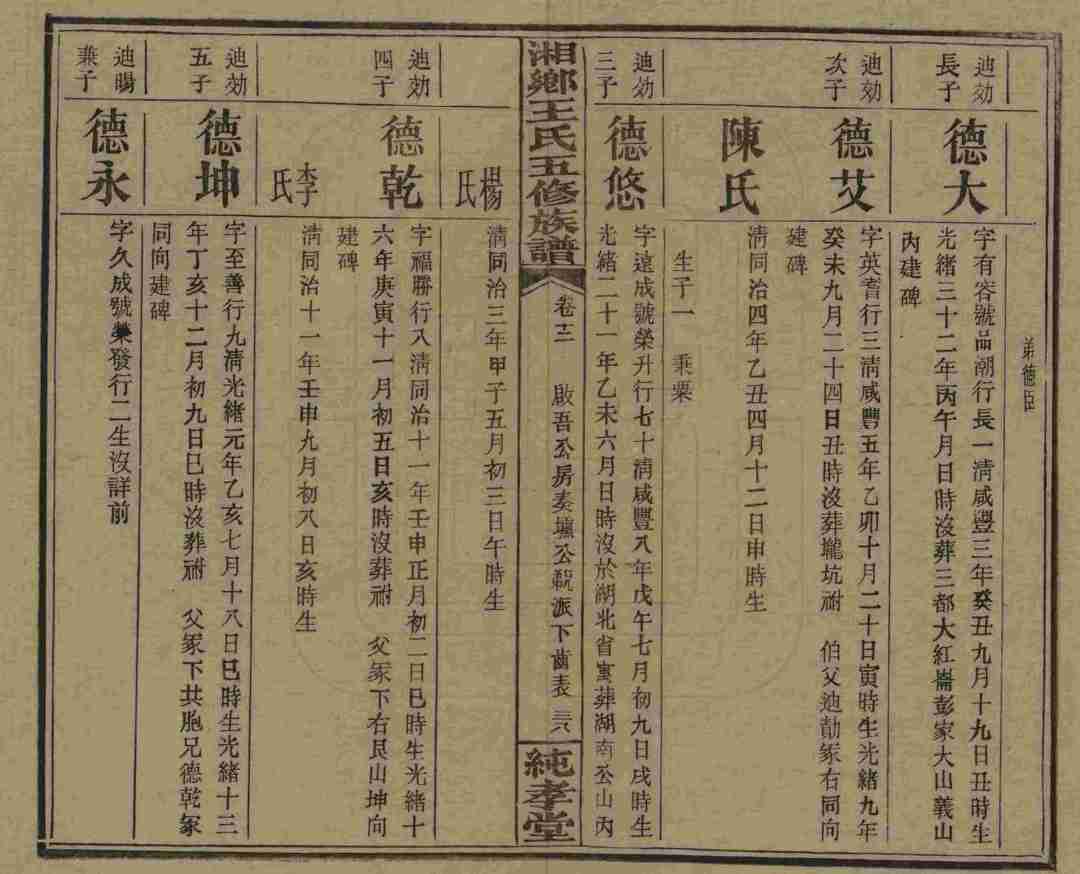 弟德臣
迪効
長子
德大
字有容號品潮行長一淸咸豐三年癸丑九月十九日丑時生
光緒三十二年丙午月日時沒葬三都大紅崙彭家大山義山
內建碑
迪効
次子
德艾
字英耆行三淸咸豐五年乙卯十月二十日寅時生光緒九年
癸未九月二十四日丑時沒葬壠坑祔 伯父迪勣冢右同向
建碑
陳氏
淸同治四年乙丑四月十二日申時生
生子一 乘栗
迪効
三子
德悠
字遠成號榮升行七十淸咸豐八年戊午七月初九日戌時生
光緒二十一年乙未六月日時沒於湖北省寓葬湖南公山內
湘鄉王氏五修族譜
卷十二 啟吾公房奏壎公䚻派下齒表 三八
純孝堂
楊氏
淸同治三年甲子五月初三日午時生
迪効
四子
德乾
字福勝行八淸同治十一年壬申正月初二日巳時生光緒十
六年庚寅十一月初五日亥時沒葬祔 父冢下右艮山坤向
建碑
李氏
淸同治十一年壬申九月初八日亥時生
迪効
五子
德坤
字至善行九淸光緒元年乙亥七月十八日巳時生光緒十三
年丁亥十二月初九日巳時沒葬祔 父冢下共胞兄德乾冢
同向建碑
迪暘
兼子
德永
字久成號榮發行二生沒詳前